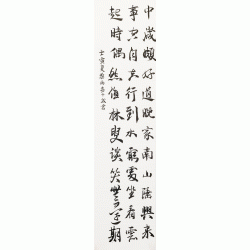 中歲頗好道晚家南山陲興來
事空自知行到水窮處坐看雲
起時偶然值林叟談笑無還期
壬寅夏